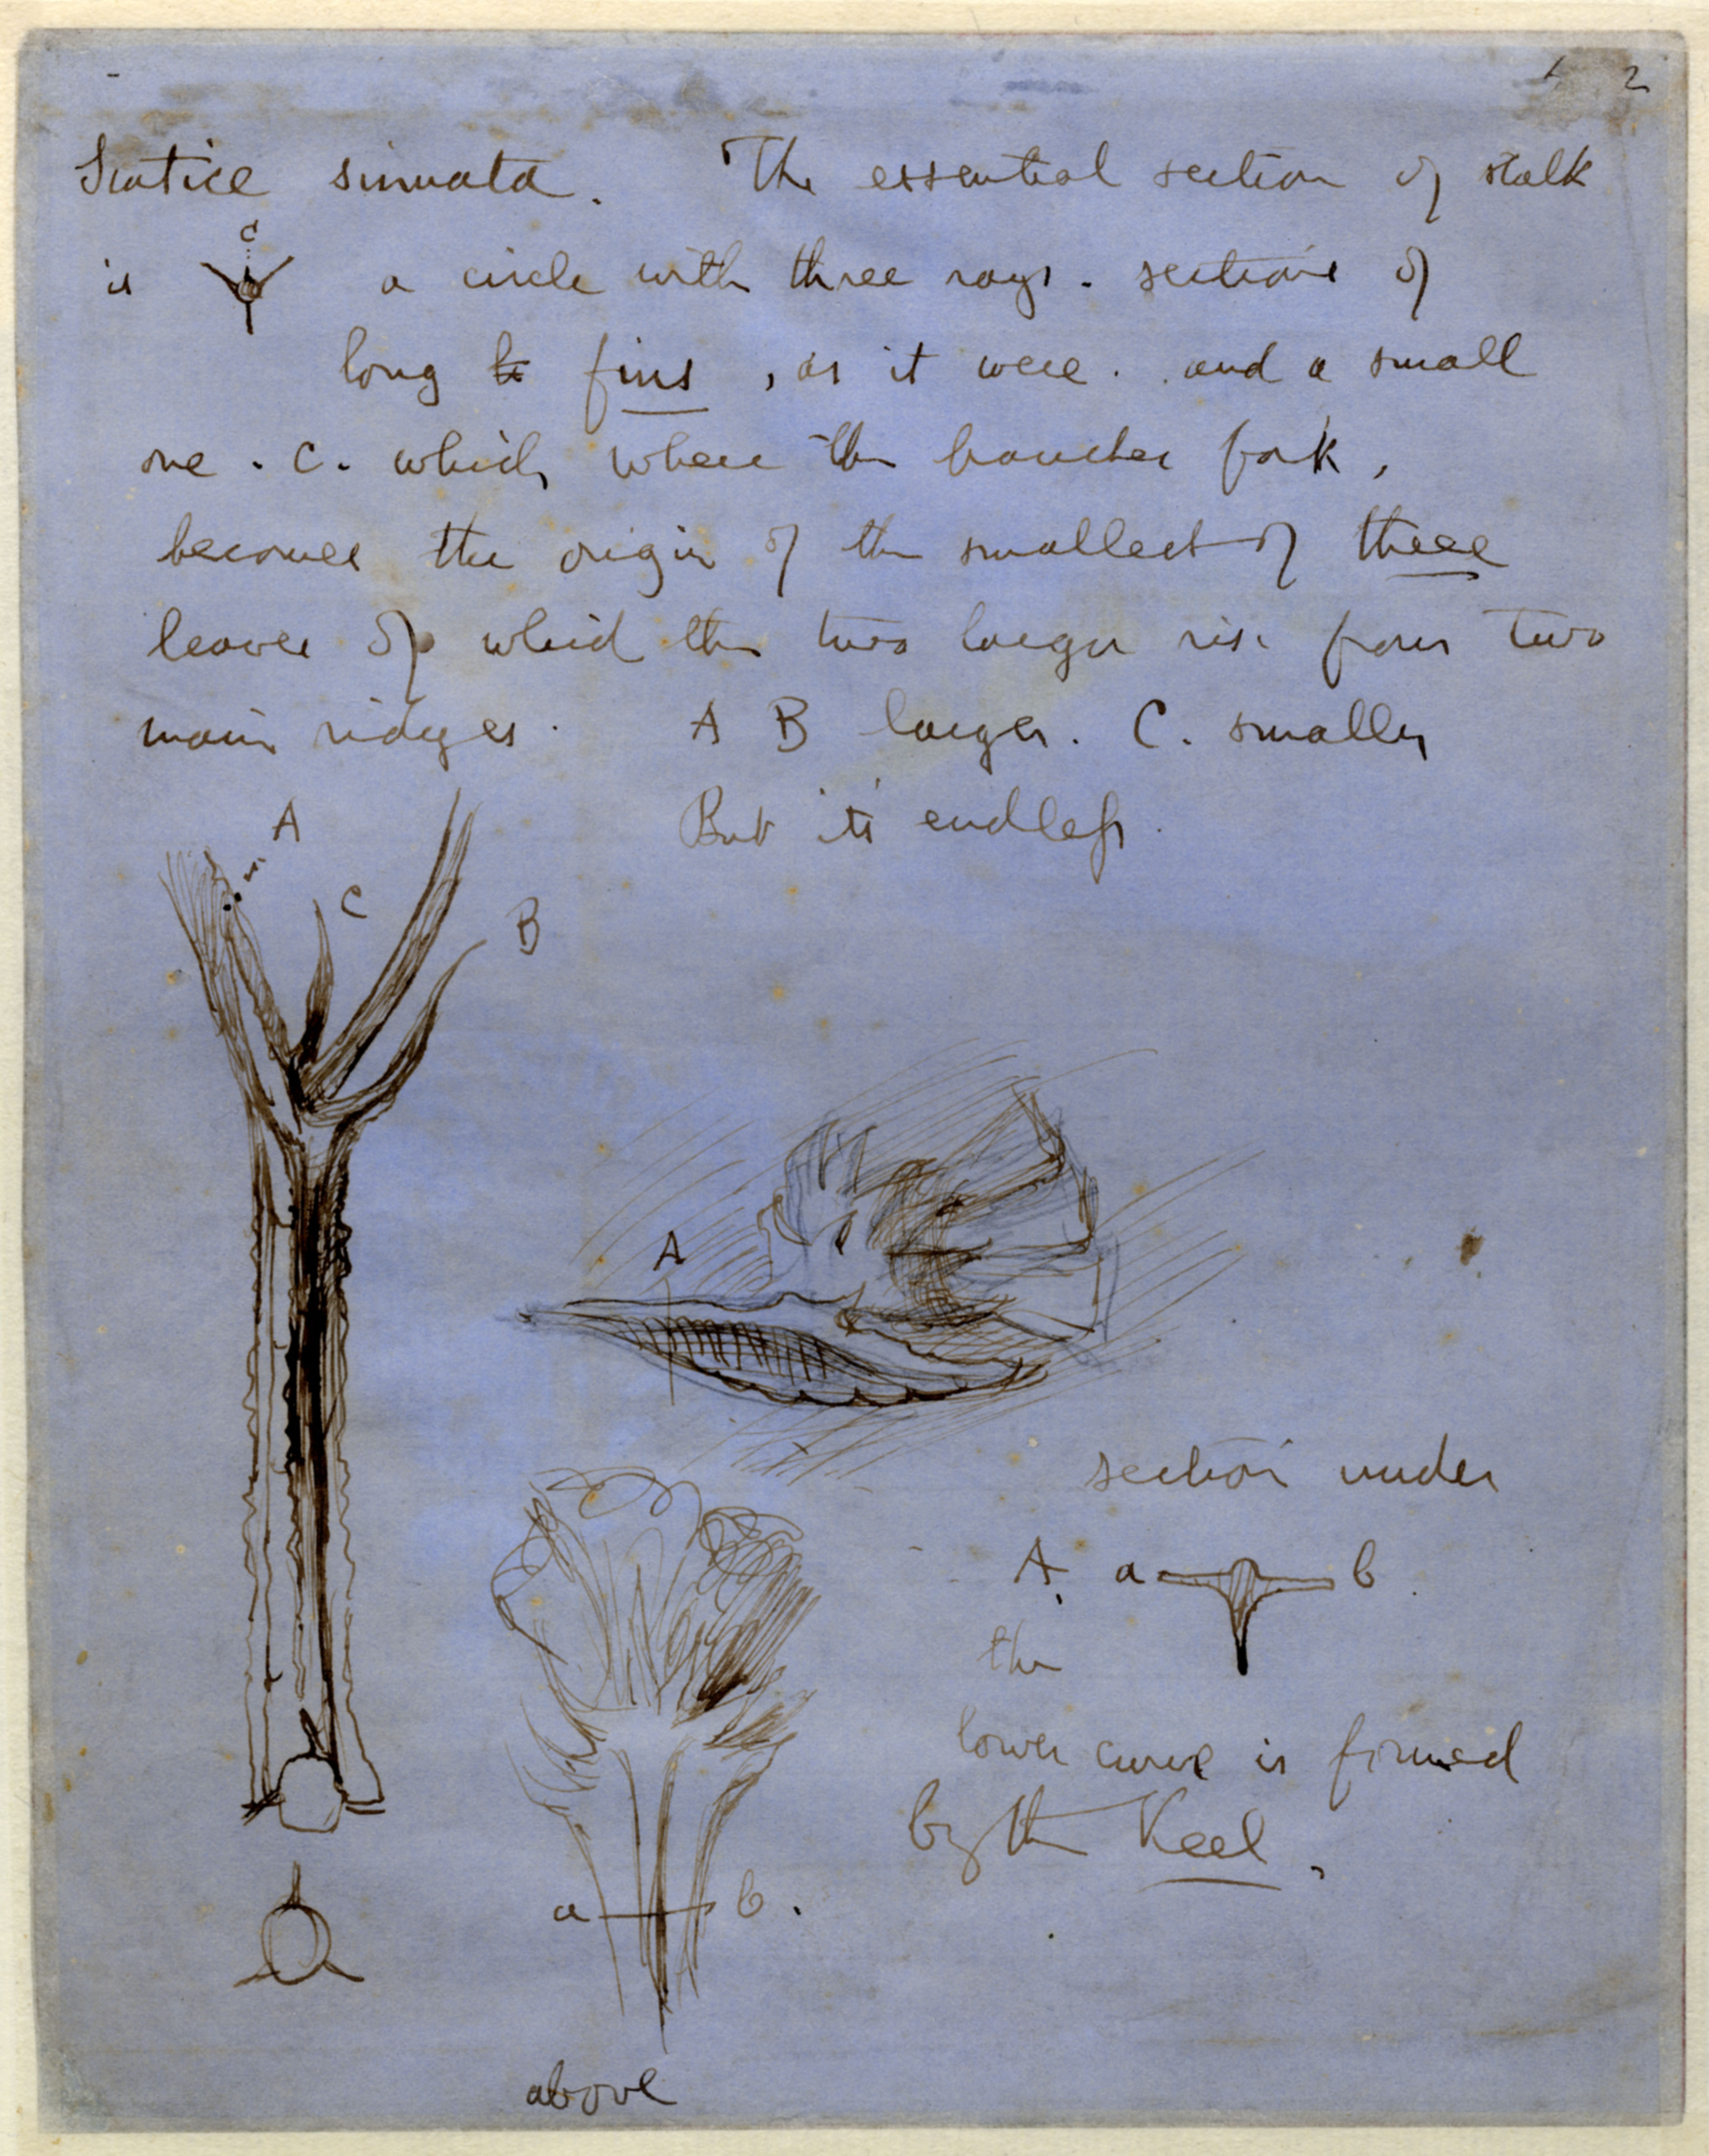 2
Statice sinuata. The essential section of stalk
C
is a circle with three rays. sections of
long fins, as it were. and a small
one. C. which where the branches fork,
becomes the origin of the smallest of three
leaves of which the two larger rise from two
main ridges. A B larger. C. smaller
But its endless.
A
C
B
A
section under
A. a b.
the
lower curve is formed
by the Keel.
a b.
above